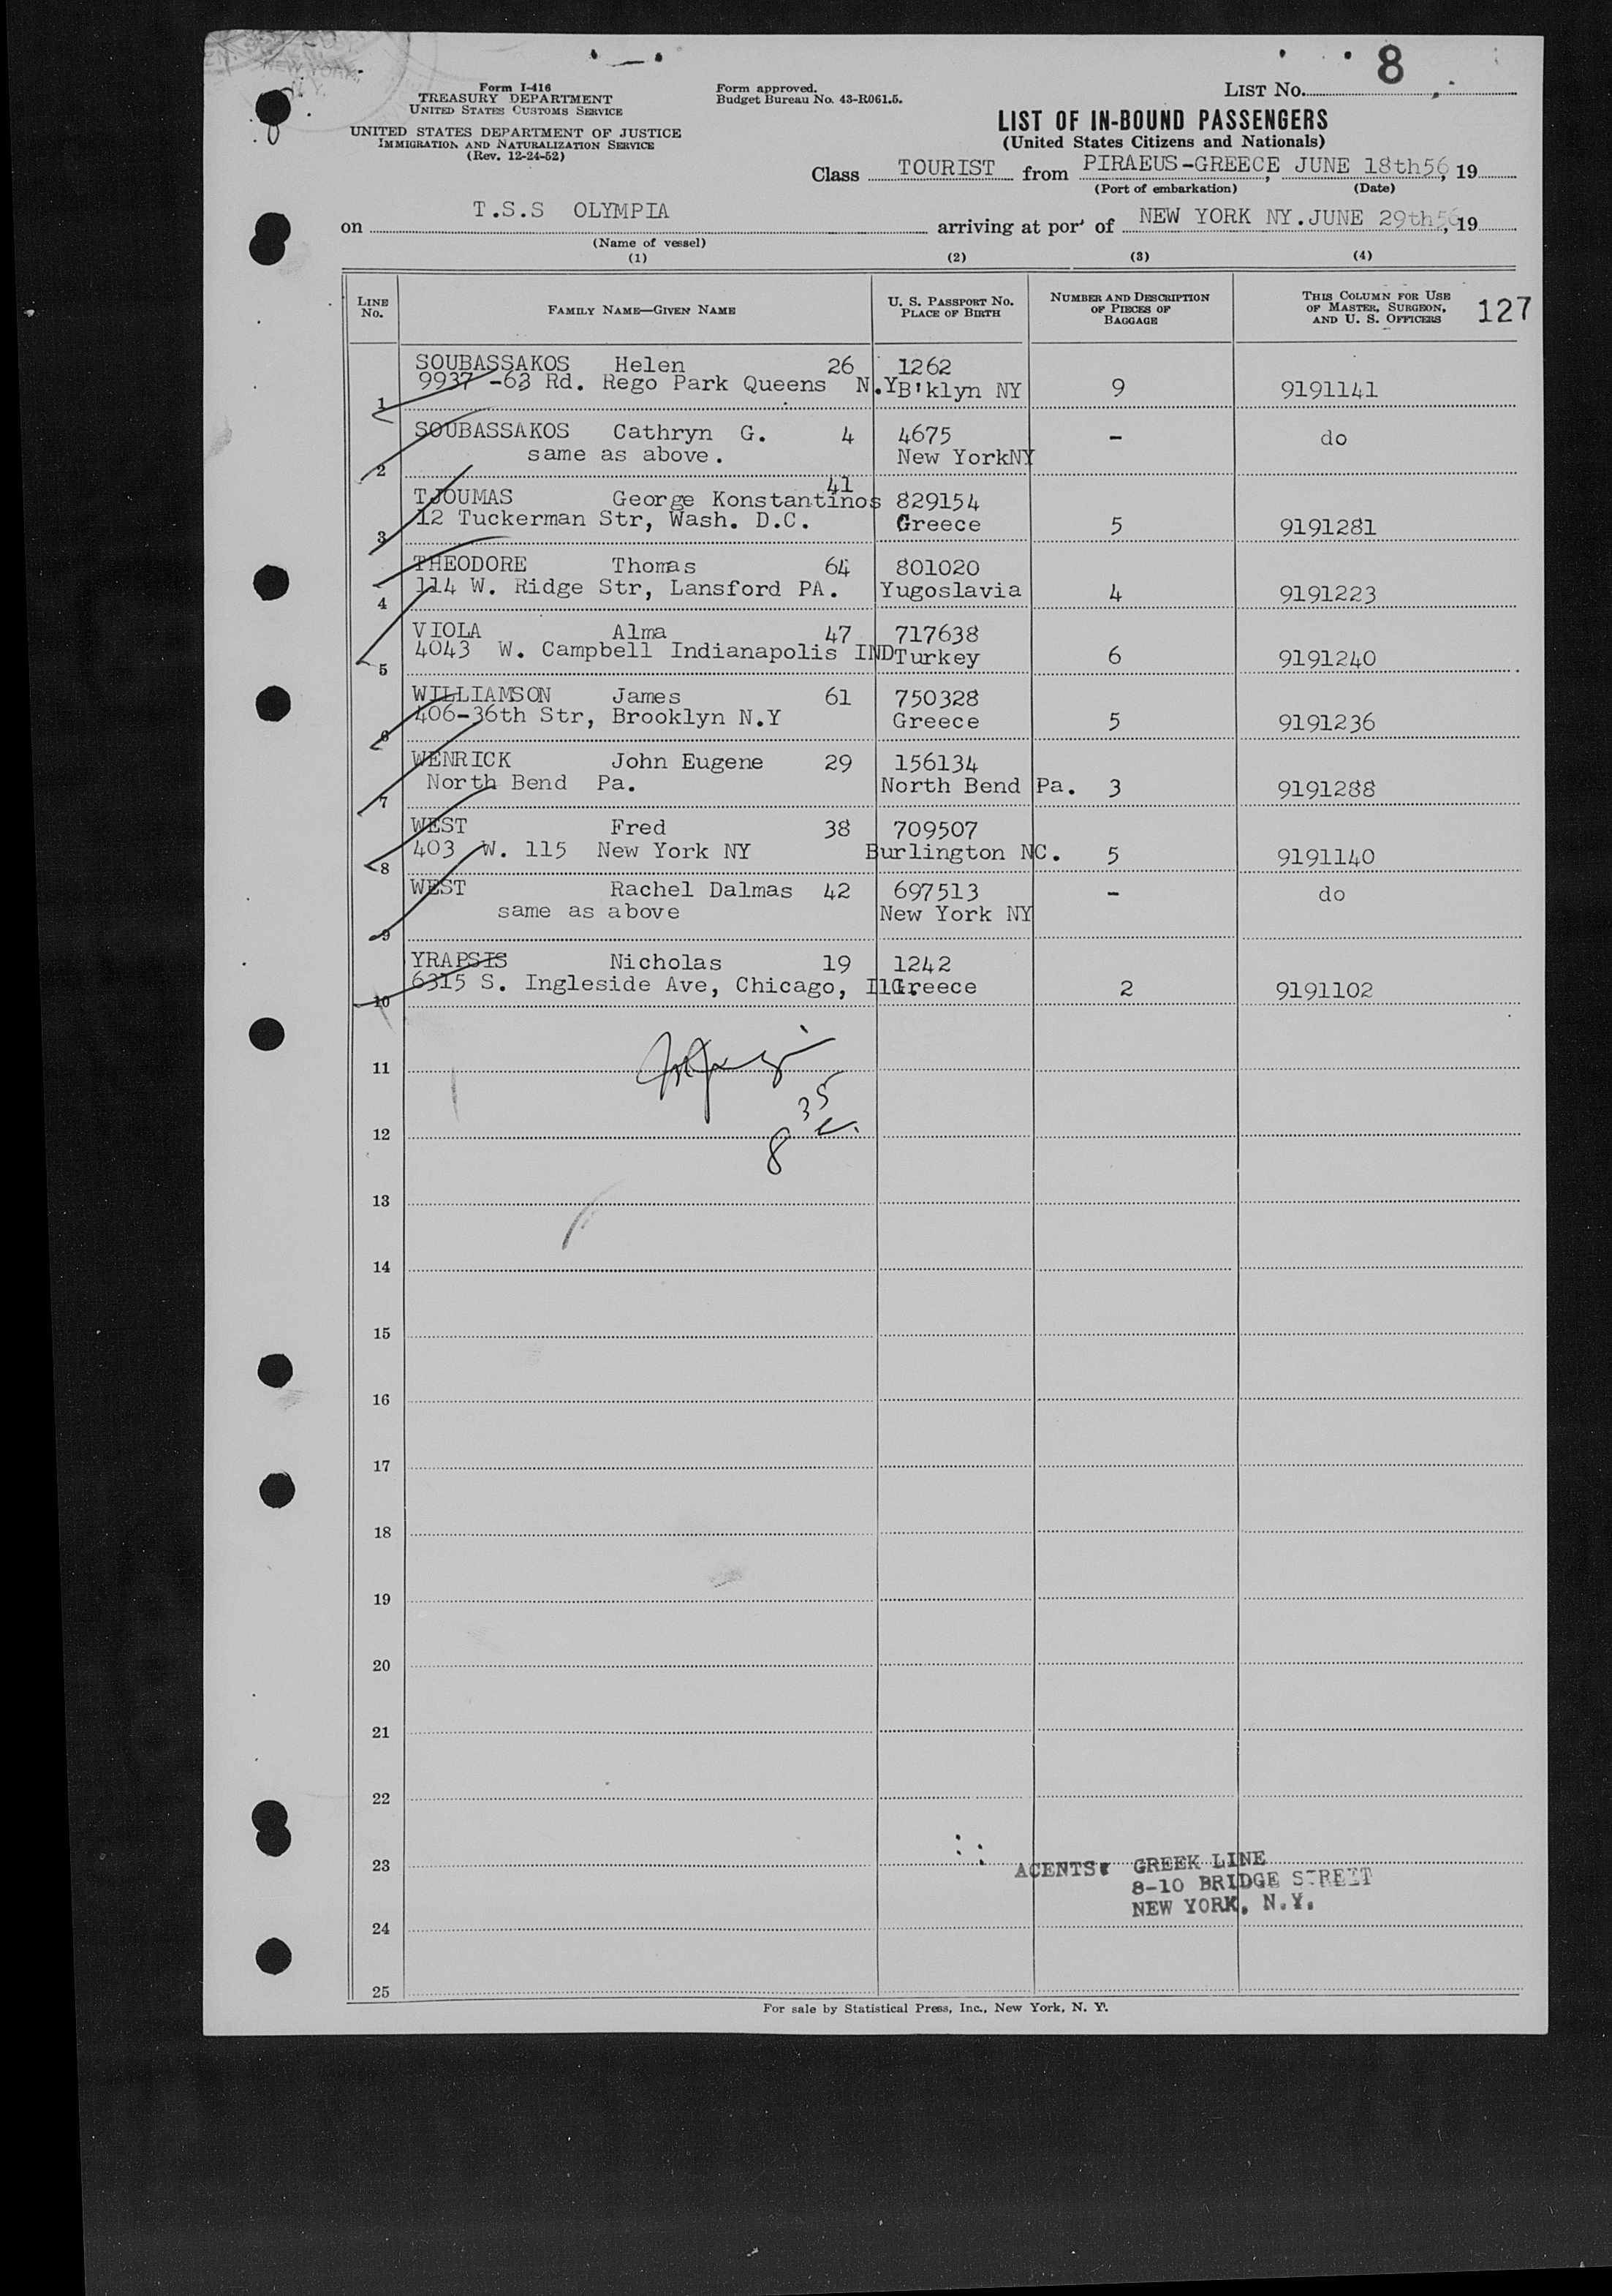 8
Form I-416
TREASURY DEPARTMENT
UNITED STATES CUSTOMS SERVICE
UNITED STATES DEPARTMENT OF JUSTICE
IMMIGRATION AND NATURALIZATION SERVICE
(Rev. 12-24-52)
Form approved.
Budget Bureau No. 43-R061.5.
LIST No.
LIST OF IN-BOUND PASSENGERS
(United States Citizens and Nationals)
Class TOURIST from PIRAEUS-GREECE, JUNE 18th56, 19
(Port of embarkation) (Date)
on T.S.S OLYMPIA arriving at port of NEW YORK NY. JUNE 29th56, 19
(Name of vessel)
(1) (2) (3) (4)
LINE No. FAMILY NAME—GIVEN NAME U. S. PASSPORT No. PLACE OF BIRTH NUMBER AND DESCRIPTION OF PIECES OF BAGGAGE THIS COLUMN FOR USE OF MASTER, SURGEON, AND U. S. OFFICERS 127
SOUBASSAKOS Helen 26 1262
1 9937 -63 Rd. Rego Park Queens N.Y B'klyn NY 9 9191141
SOUBASSAKOS Cathryn G. 4 4675 - do
2 same as above. New YorkNY
41
TJOUMAS George Konstantinos 829154
3 12 Tuckerman Str, Wash. D.C. Greece 5 9191281
THEODORE Thomas 64 801020
4 114 W. Ridge Str, Lansford PA. Yugoslavia 4 9191223
VIOLA Alma 47 717638
5 4043 W. Campbell Indianapolis IND Turkey 6 9191240
WILLIAMSON James 61 750328
6 406-36th Str, Brooklyn N.Y Greece 5 9191236
WENRICK John Eugene 29 156134
7 North Bend Pa. North Bend Pa. 3 9191288
WEST Fred 38 709507
8 403 W. 115 New York NY Burlington NC. 5 9191140
WEST Rachel Dalmas 42 697513 - do
9 same as above New York NY
YRAPSIS Nicholas 19 1242
10 6315 S. Ingleside Ave, Chicago, Ill. Greece 2 9191102
11
35
12
8
13
14
15
16
17
18
19
20
21
22
23 AGENTS: GREEK LINE
8-10 BRIDGE STREET
NEW YORK, N.Y.
24
25
For sale by Statistical Press, Inc., New York, N. Y.